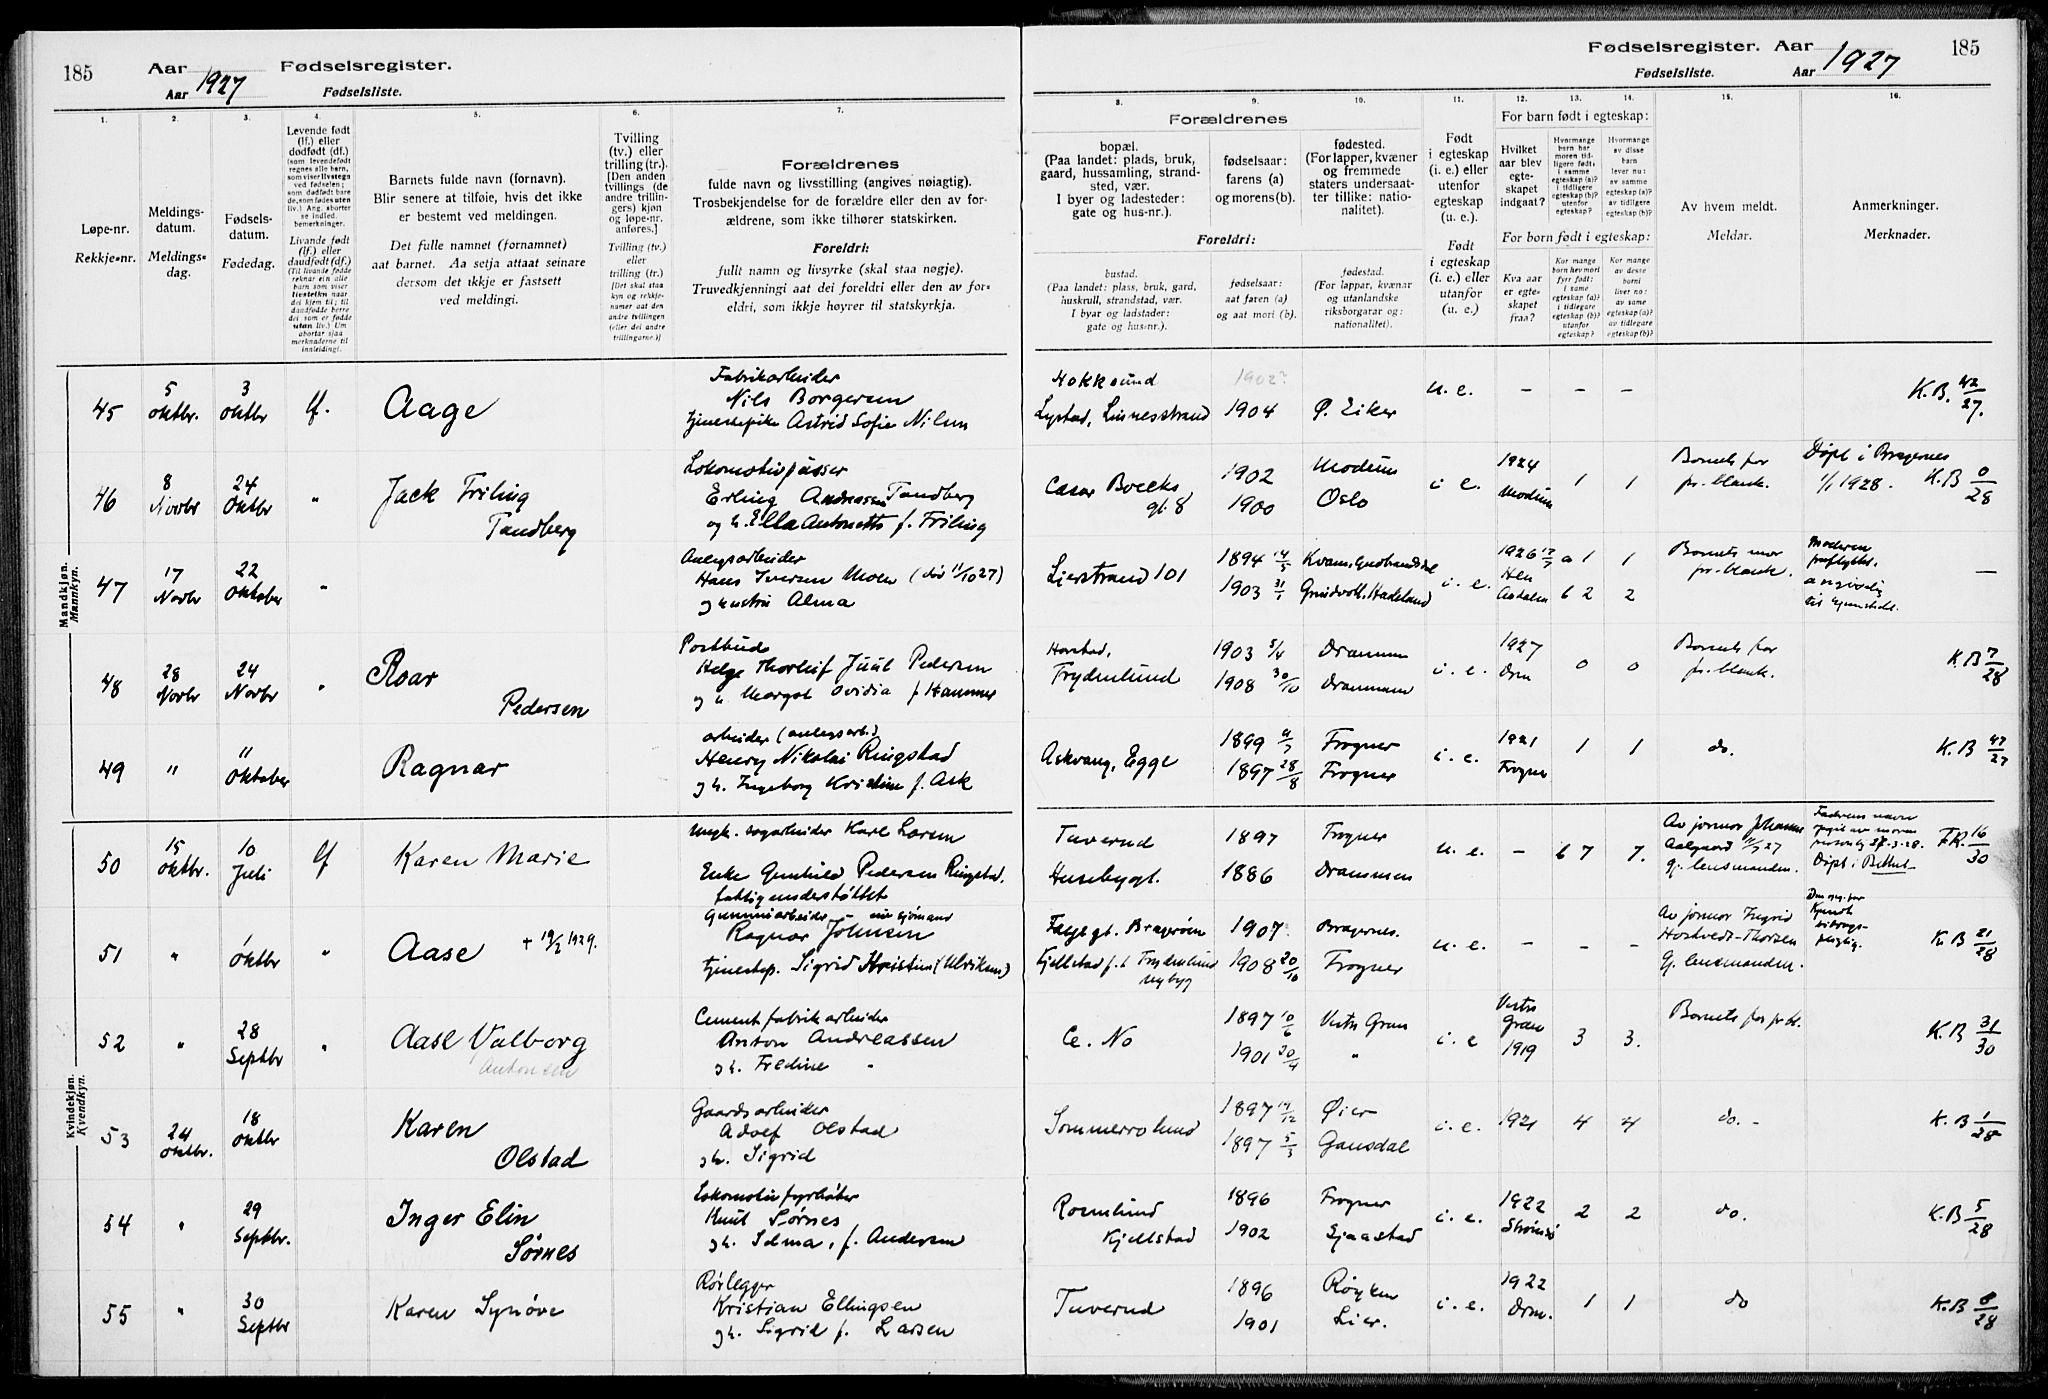 185
Aar 1927
Fødselsregister.
Aar
Fødselsliste.
1.
Løpe-nr.
Rekkje-nr.
2.
Meldings-
datum.
Meldings-
dag.
3.
Fødsels-
datum.
Fødedag.
4.
Levende født
(lf.) eller
dødfødt (df.)
5.
Barnets fulde navn (fornavn).
Blir senere at tilføie, hvis det ikke
er bestemt ved meldingen.
Det fulle namnet (fornamnet)
aat barnet. Aa setja attaat seinare
dersom det ikkje er fastsett
ved meldingi.
6.
Tvilling
(tv.) eller
trilling (tr.).
[Den anden
tvillings (de
andre trillin-
gers) kjøn
og løpe-nr.
anføres.]
Tvilling (tv.)
eller
trilling (tr.)
7.
Forældrenes
fulde navn og livsstilling (angives nøiagtig).
Trosbekjendelse for de forældre eller den av for-
ældrene, som ikke tilhører statskirken.
Foreldri:
fullt namn og livsyrke (skal staa nøgje).
Truvedkjenningi aat dei foreldri eller den av for-
eldri, som ikkje høyrer til statskyrkja.
Fødselsregister. Aar 1927
185
Fødselsliste. Aar
8.
Forældrenes
bopæl.
(Paa landet: plads, bruk,
gaard, hussamling, strand-
sted, vær.
I byer og ladesteder:
gate og hus-nr.).
Foreldri:
bustad.
(Paa landet: plass, bruk, gard,
huskrull, strandstad, vær.
I byar og ladstader:
gate og hus-nr.).
9.
fødselsaar:
farens (a)
og morens (b).
fødselsaar:
aat faren (a)
og aat mori (b).
10.
fødested.
(For lapper, kvæner
og fremmede
staters undersaat-
ter tillike: natio-
nalitet).
fødestad.
(For lappar, kvænar
og utanlandske
riksborgarar og:
nationalitet).
11.
Født
i egteskap
(i. e.) eller
utenfor
egteskap
(u. e.).
Født
i egteskap
(i. e.) eller
utanfor
(u. e.)
12.
13.
14.
For barn født i egteskap:
Hvilket
aar blev
egte-
skapet
indgaat?
For born født i egteskap:
Kva aar
er egte-
skapet
fraa?
15.
Av hvem meldt.
Meldar.
16.
Anmerkninger.
Merknader.
Mandkjøn.
Mannkyn.
45 5 oktbr. 3 oktbr lf. Aage
Fabrikarbeider
Nils Borgersen
tjenestepike Astrid Sofie Nilsen
Hokksund 1902?
Lystad, Linnesstrand 1904 Ø. Eiker u. e. – – –
K.B. 42/27.
46 8 Novbr 24 Oktbr " Jack Friling
Tandberg
Lokomotivpusser
Erling Andreassen Tandberg
og h. Ella Antonette f. Friling
Cæsar Boecks 1902 Modum
gt. 8 1900 Oslo i e. 1924 Modum 1 1
Barnets far
pr. blank.
Døpt i Bragernes
1/1 1928. K.B 0/28
47 17 Novbr 22 Oktober "
Anlegsarbeider
Hans Iversen Moen (død 11/10 27)
og hustru Alma
Lierstrand 101 1894 14/5 Kvam, Gudbrandsdal
1903 31/1 Grindvoll, Hadeland i. e. 1926 a 1 1
b 2 2
Barnets mor
pr. blank.
Moderen
fraflyttet
angivelig
–
48 28 Novbr 24 Novbr " Roar
Pedersen
Postbud
Helge Thorleif Juul Pedersen
og h. Margot Ovidia f Hammer
Frydenlund 1903 5/4 Drammen
1908 30/10 Drammen i. e. 1927 Drm 0 0
Barnets far
pr. blank.
K.B 7/28
49 " " Oktober Ragnar
arbeider (anlegsarb.)
Henry Nikolai Ringstad
og h. Ingeborg Kristine f. Ask
Askvang, Egge 1899 9/7 Frogner
1897 28/8 Frogner i. e. 1921 Frogner 1 1 do.
K.B 47/27
Kvindekjøn.
Kvendkyn.
50 15 oktbr. 10 Juli lf Karen Marie
ungk. sagarbeider Karl Larsen
Enke Gunhild Pedersen Ringstad.
fattigunderstøttet
Tuverud 1897 Frogner
Husebygt. 1886 Drammen u. e. – 6 7 7.
Av jormor Johanne
Aalgaard 11/7 27
gj. lensmanden.
Faderens navn
opgit av moren
personlig 27-3-28.
Døpt i Bethel
F.R. 16/30
51 " oktbr " Aase + 19/2 1929.
Gummiarbeider – nu sjømand
Ragnar Johnsen
tjenestep. Sigrid Kristine (Ulriksen)
Fayegt. Bragerøen 1907 Bragernes.
Kjellstad p.t. Frydenlund 1908 20/10 Frogner u. e. – – –
nybyg
Av jormor Ingrid
Hostvedt-Thorsen
Gj. lensmanden.
K.B 21/28
52 " 28 Septbr " Aase Valborg
Antonsen
Cementfabrikarbeider
Anton Andreassen
og h. Fredine "
Ce. No 1897 10/6 Vestre Gran
1901 20/4 " i. e Vestre
Gran
1919 3 3.
Barnets far pr bl.
K.B 31/30
53 24 oktbr. 18 oktbr Karen
Olstad
Gaardsarbeider
Adolf Olstad
og h. Sigrid
Sommerrolund 1897 14/12 Øier
1897 5/3 Gausdal i. e. 1921 4 4 do. –
K.B 1/28
54 " 29 Septbr. Inger Elin
Sørnes
Lokomotivfyrbøter
Knut Sørnes
og h. Selma, f. Andersen
Rosenlund 1896 Frogner
Kjellstad 1902 Sjaastad i. e. 1922 Strømsø 2 2 do.
K.B 5/28
55 " 30 Septbr Karen Synøve
Rørlegger
Kristian Ellingsen
og h. Sigrid f. Larsen
Tuverud 1896 Røyken
1901 Lier. i. e. 1922 Drm. 1 1 do
K.B 8/28